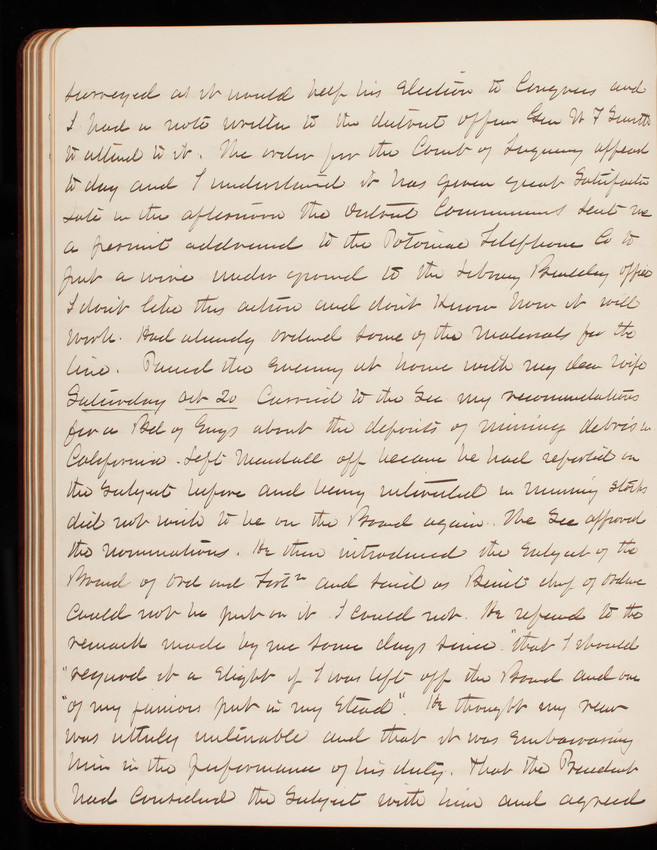 surveyed as it would help his election to Congress and
I had a note written to the district officer Gen W F Smith
to attend to it. The order for the Court of Inquiry appeared
to day and I understand it has given great satisfaction
Late in the afternoon the District Commissioners sent me
a permit addressed to the Potomac Telephone Co to
put a wire under ground to the Library Building office
I don't like this action and don't know how it will
work. Had already ordered some of the materials for the
line. Passed the evening at home with my dear wife
Saturday Oct 20 Carried to the Sec my recommendations
for a Bd of Engs about the deposits of mining debris in
California. Left Mendell off because he had reported on
the subject before and being interested in mining stocks
did not wish to be on the Board again. The Sec approved
the nominations. He then introduced the subject of the
Board of Ord and Fortn and said as Benét chief of Ordnce
could not be put on it I could not. He referred to the
remark made by me some days since "that I should
"regard it a slight if I was left off the Board and one
"of my juniors put in my stead". He thought my view
was utterly untenable and that it was embarrassing
him in the performance of his duty. That the President
had considered the subject with him and agreed